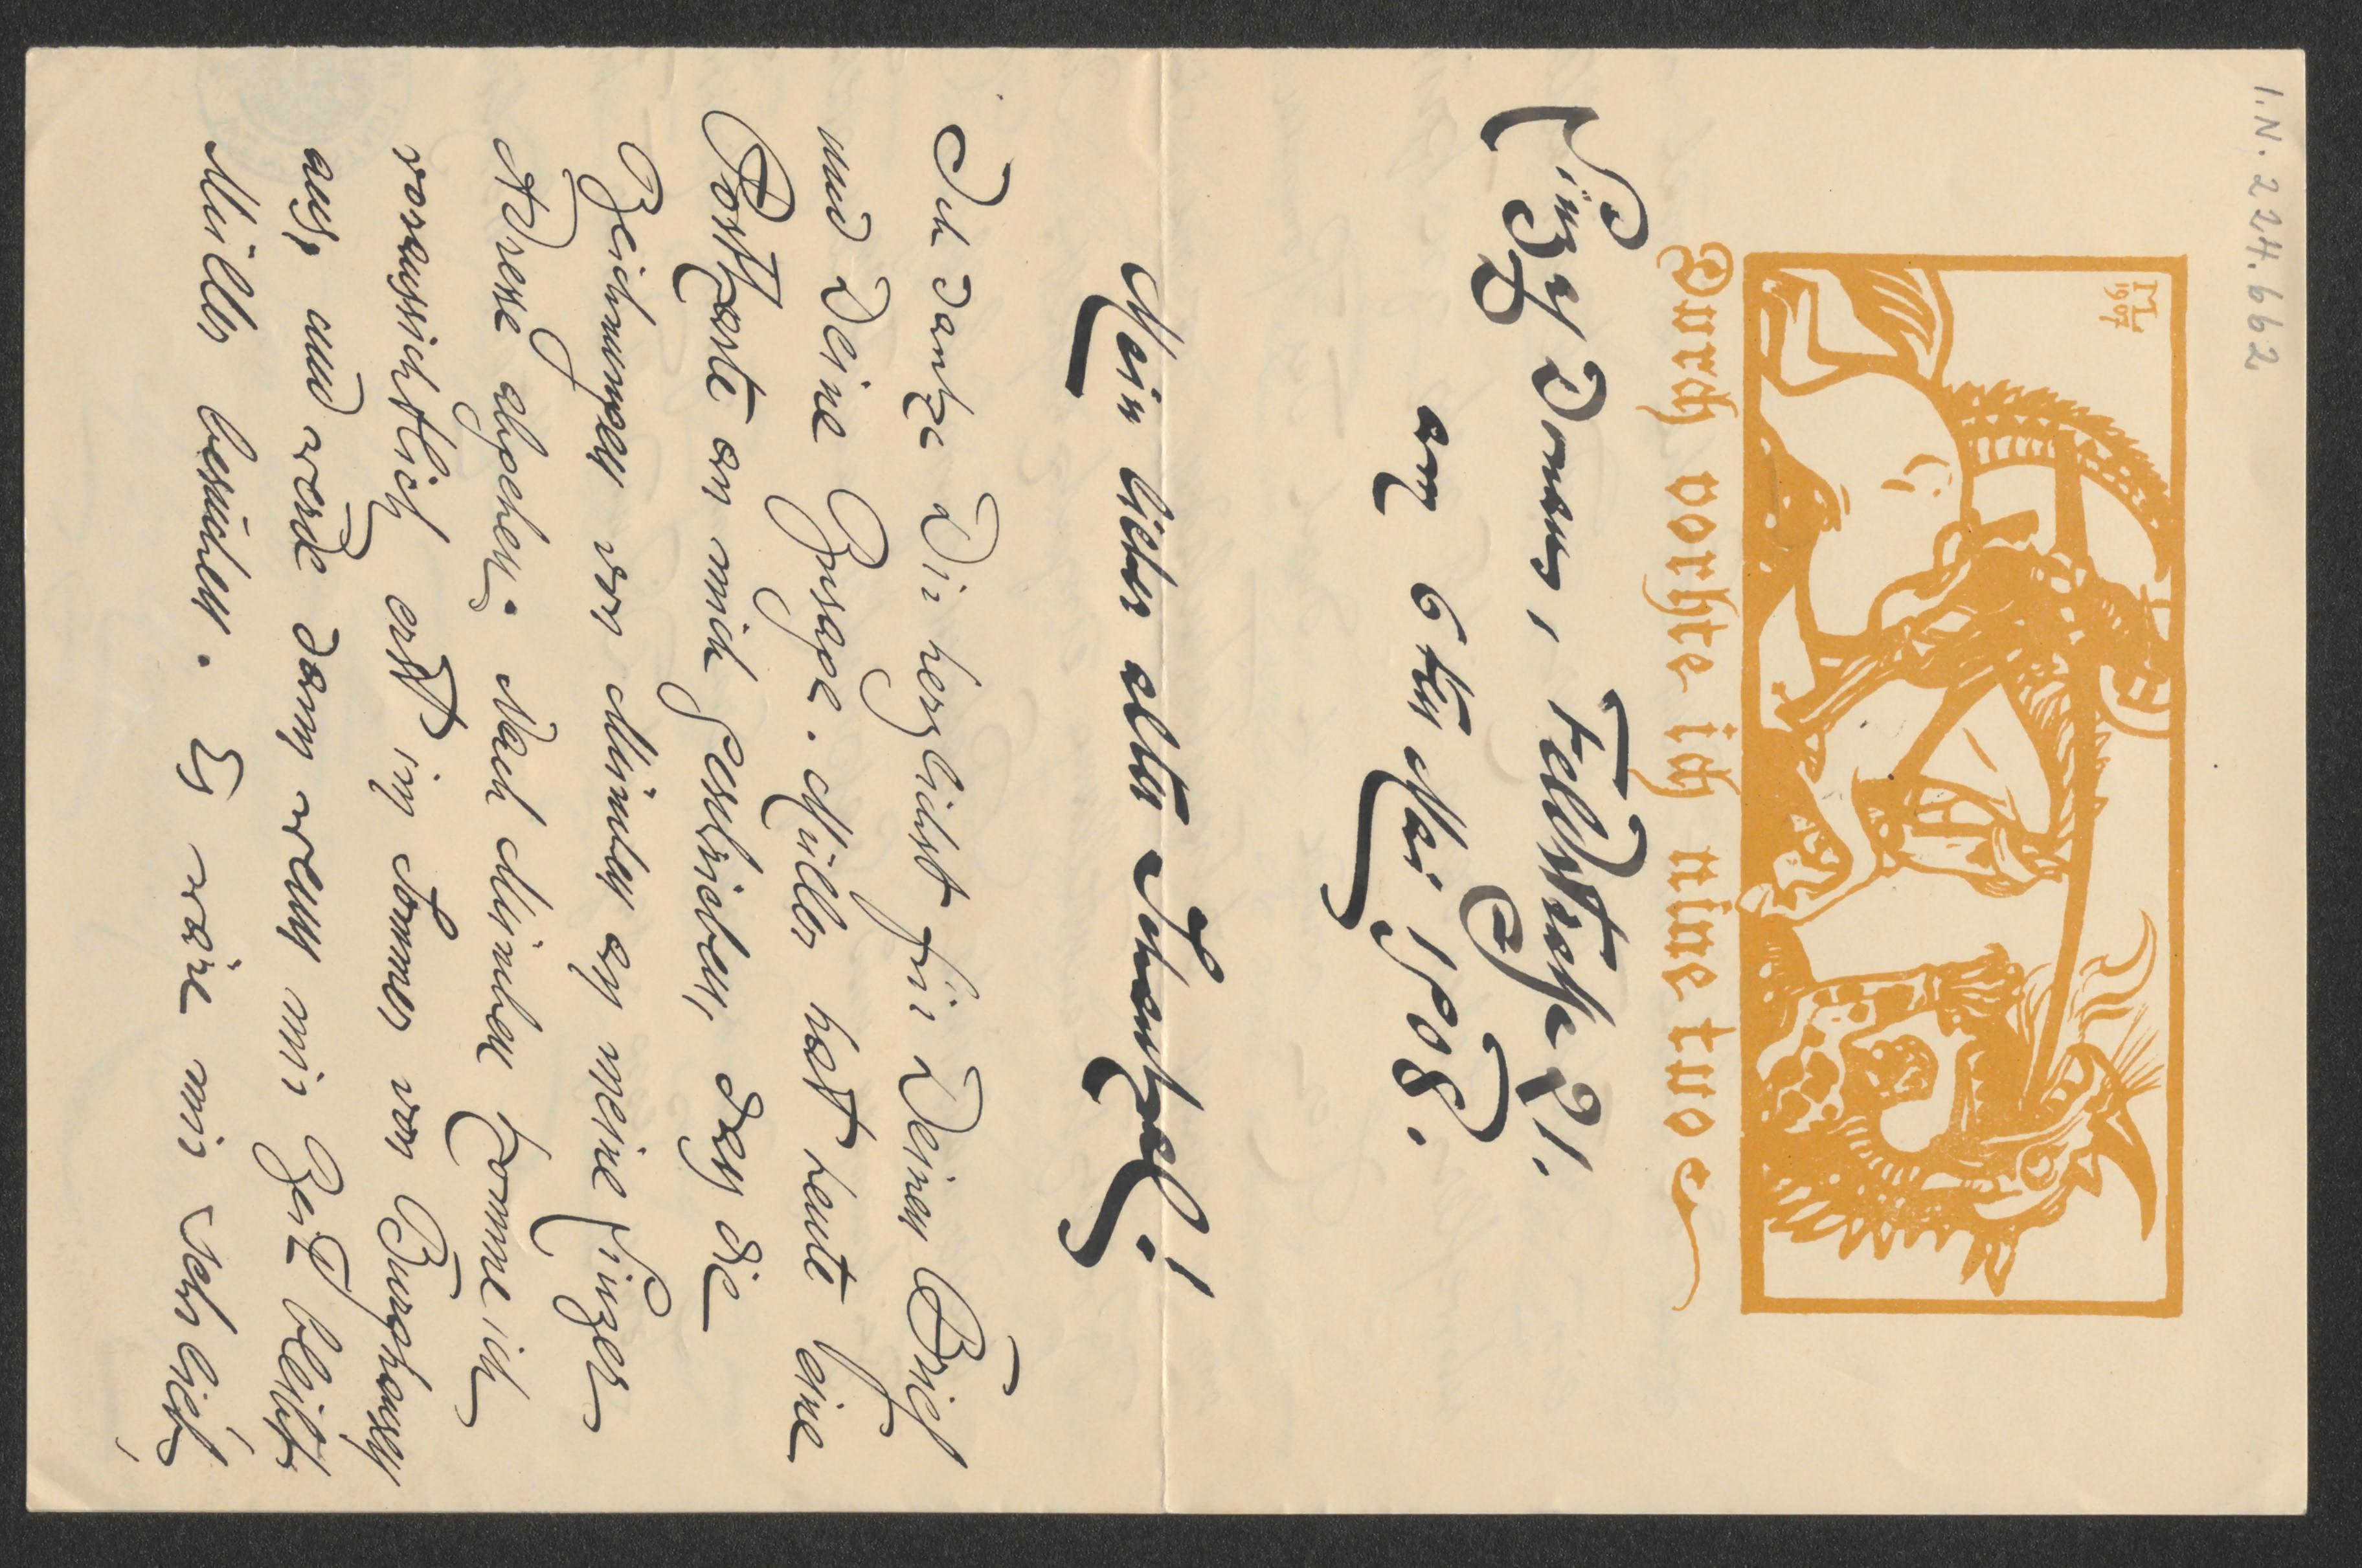 I.N. 224.662
ML
1907
Durch vorhte ich nime tuo
Linz a/Donau, Feldstraße 21.
am 6ten Mai 1908.
Mein lieber alter Schantzel!
Ich danke Dir herzlichst für Deinen Brief
und Deine Zusage. Müller hat heute eine
Postkarte an mich geschrieben, dass die
Zeichnungen von München an meine Linzer
Adresse abgehen. Nach München komme ich
voraussichtlich erst im Sommer von Burghausen
aus, und werde dann wenn mir Zeit bleibt
Müller besuchen. Es wäre mir sehr lieb,